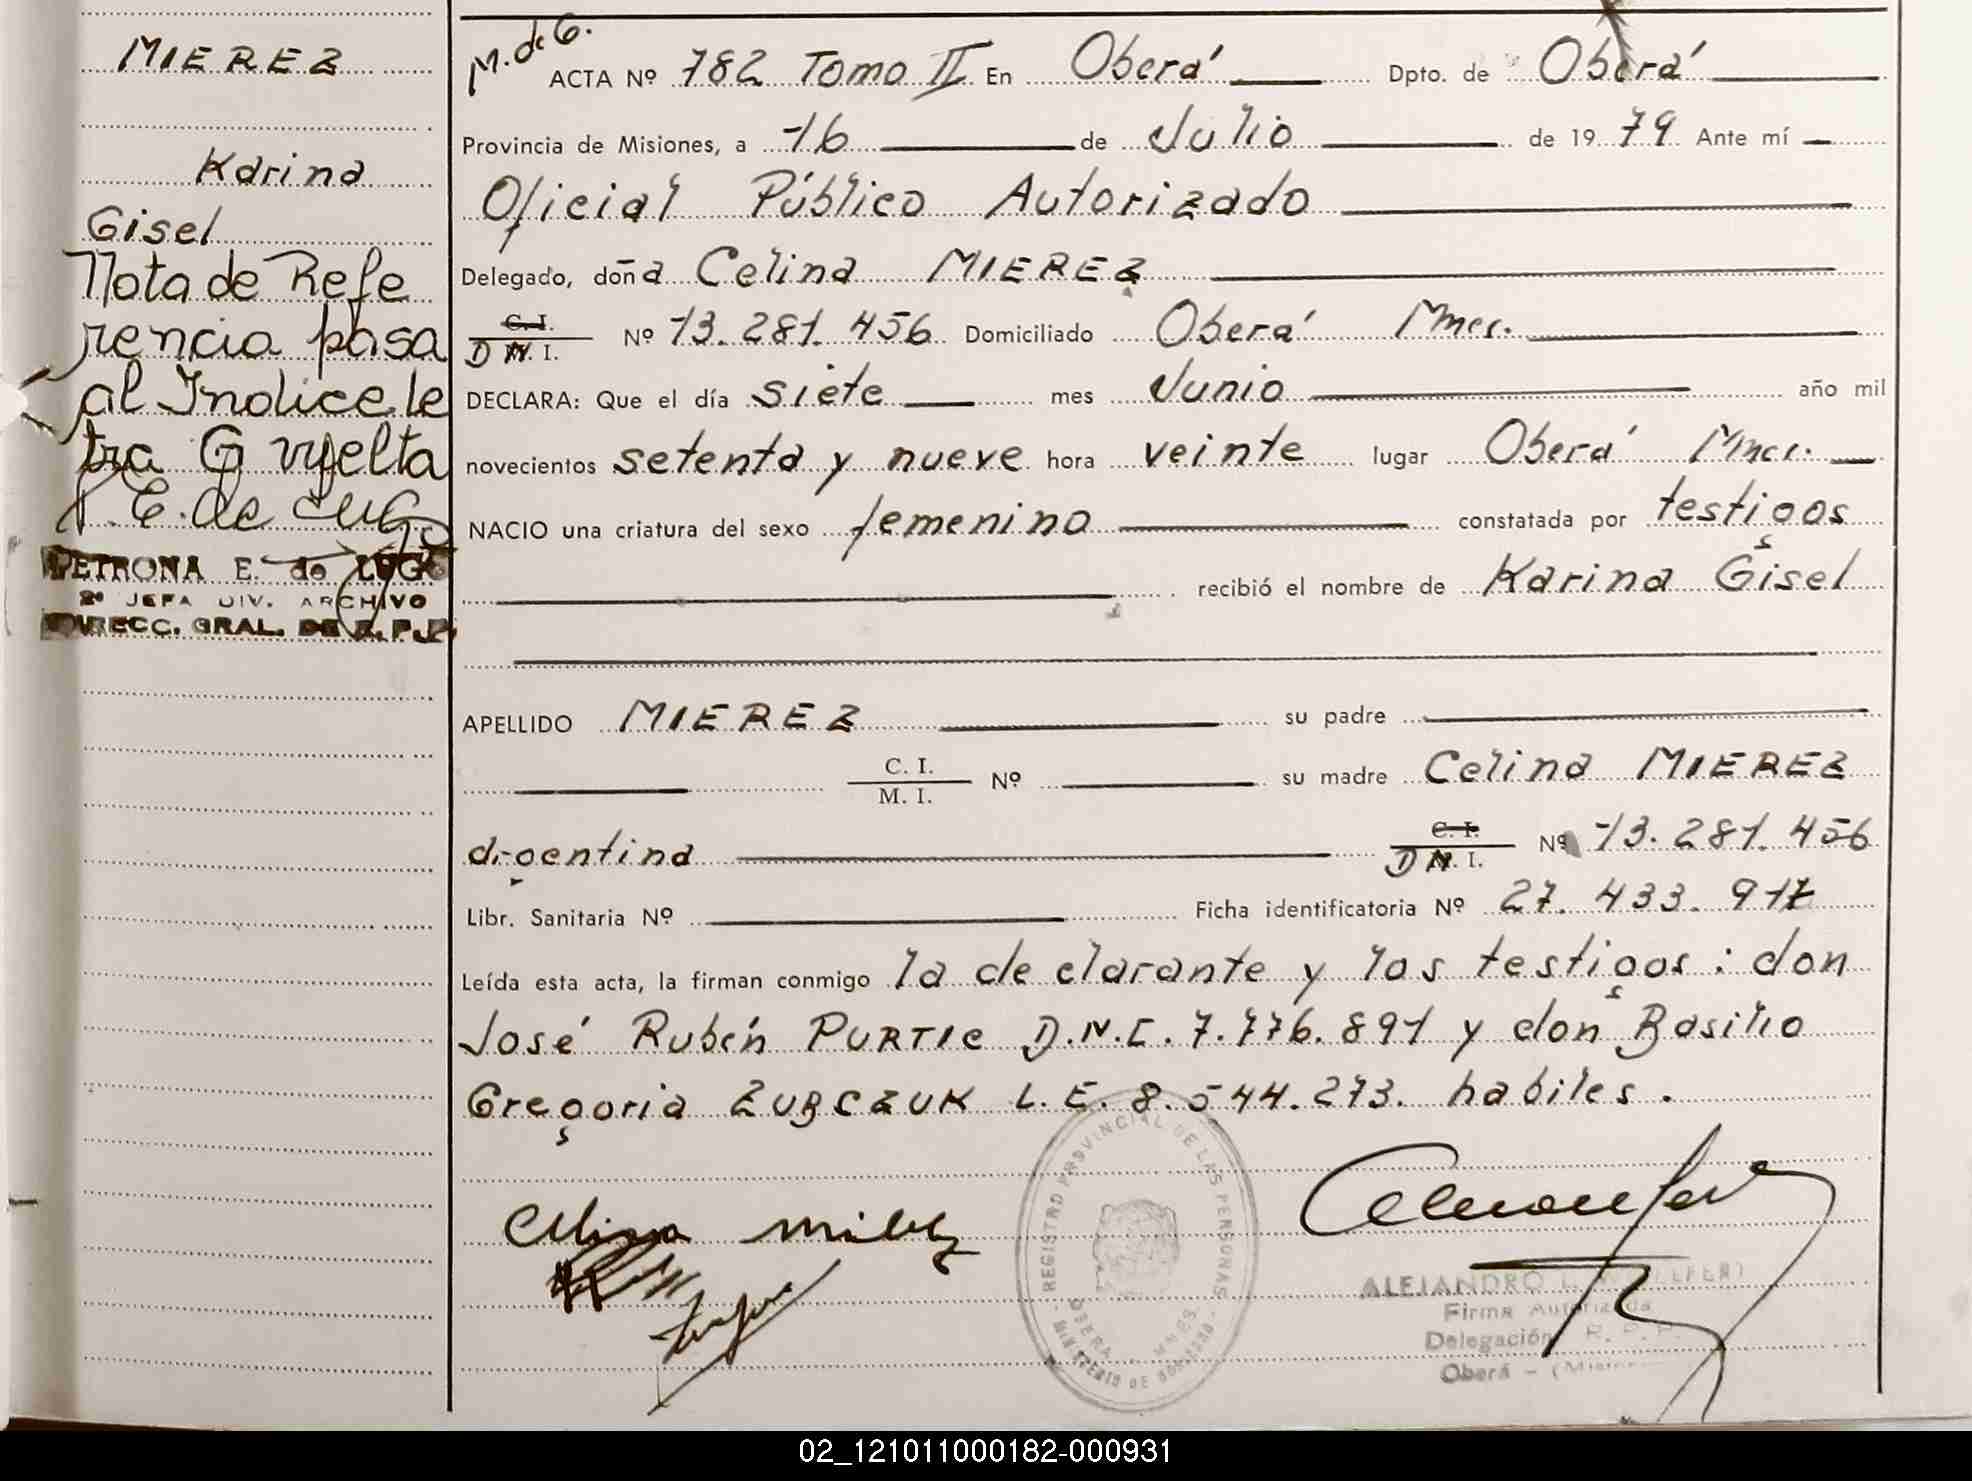 MIEREZ
Karina
Gisel
Nota de Refe
rencia pasa
al Indice le
tra G vuelta
P. E. de Lugo
PETRONA E. de LUGO
2º JEFA DIV. ARCHIVO
DIRECC. GRAL. DE R. P. P.
M. de G.
ACTA Nº 782 Tomo II En Oberá Dpto. de Oberá
Provincia de Misiones, a 16 de Julio de 1979 Ante mí
Oficial Público Autorizado
Delegado, doña Celina MIEREZ
C. I.
D N. I. Nº 13.281.456 Domiciliado Oberá Mnes.
DECLARA: Que el día siete mes Junio año mil
novecientos setenta y nueve hora veinte lugar Oberá Mnes.
NACIO una criatura del sexo femenino constatada por testigos
recibió el nombre de Karina Gisel
APELLIDO MIEREZ su padre
C. I.
M. I. Nº su madre Celina MIEREZ
argentina C. I.
D N. I. Nº 13.281.456
Libr. Sanitaria Nº Ficha identificatoria Nº 27.433.917
Leída esta acta, la firman conmigo la declarante y los testigos: don
José Rubén PURTIC D.N.I. 7.776.891 y don Basilio
Gregorio ZUBCZUK L.E. 8.544.273. habiles.
REGISTRO PROVINCIAL DE LAS PERSONAS
OBERA MNES
MINISTERIO DE GOBIERNO
ALEJANDRO L.
Firma Autorizada
Delegación R. P. P.
Oberá - (Misiones
02_121011000182-000931